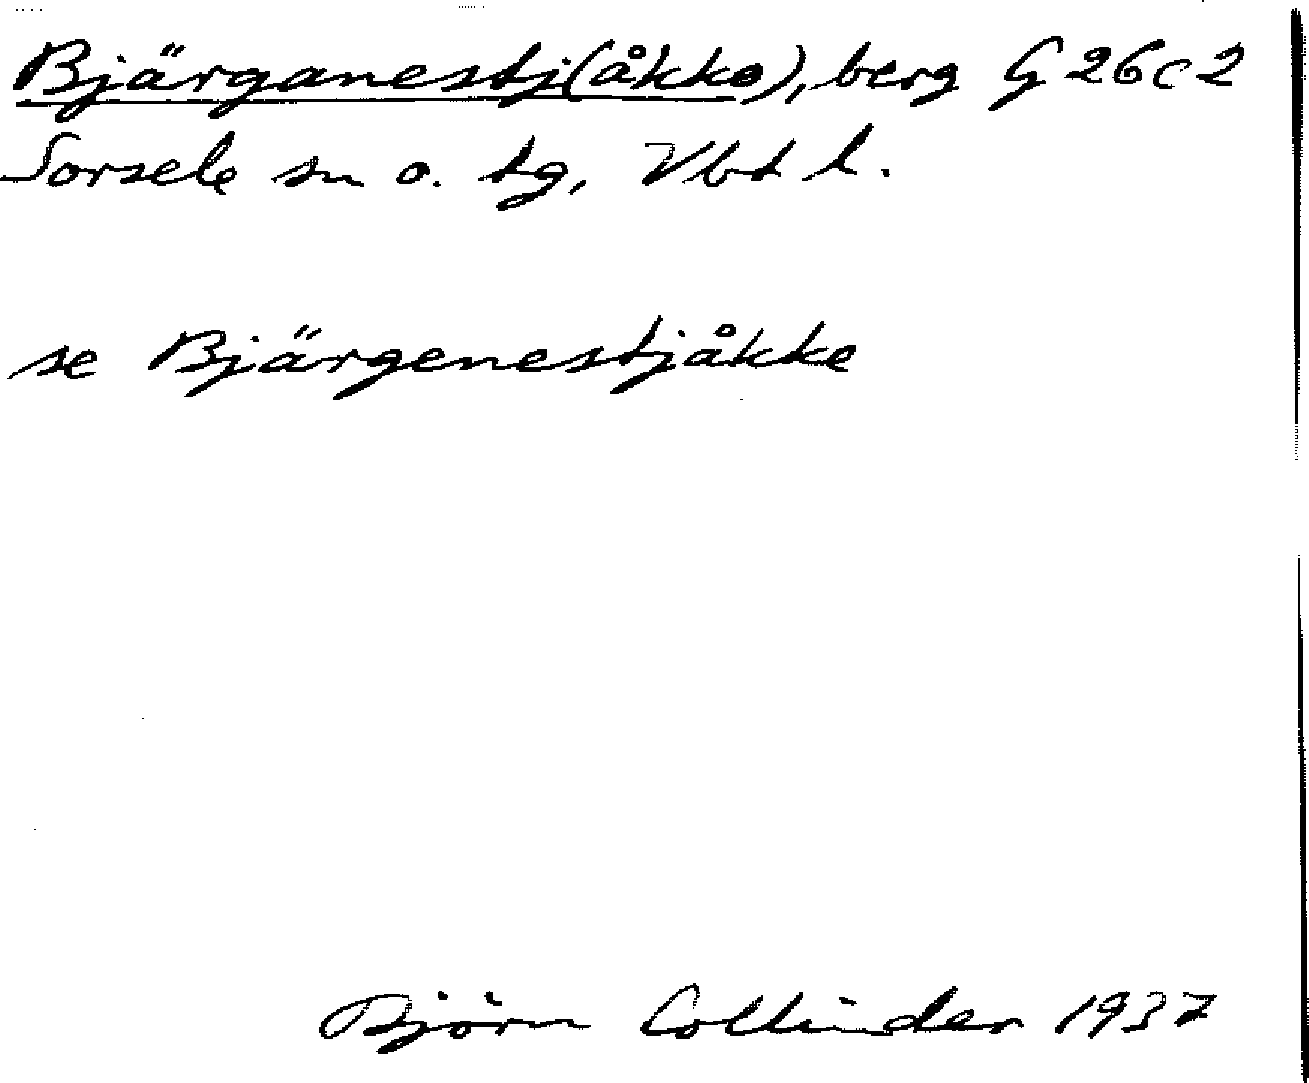 Bjärganestj(åkko), berg G 26 c 2
Sorsele sn o. tg, Vbt l.
se Bjärgenestjåkke
Björn Collinder 1937